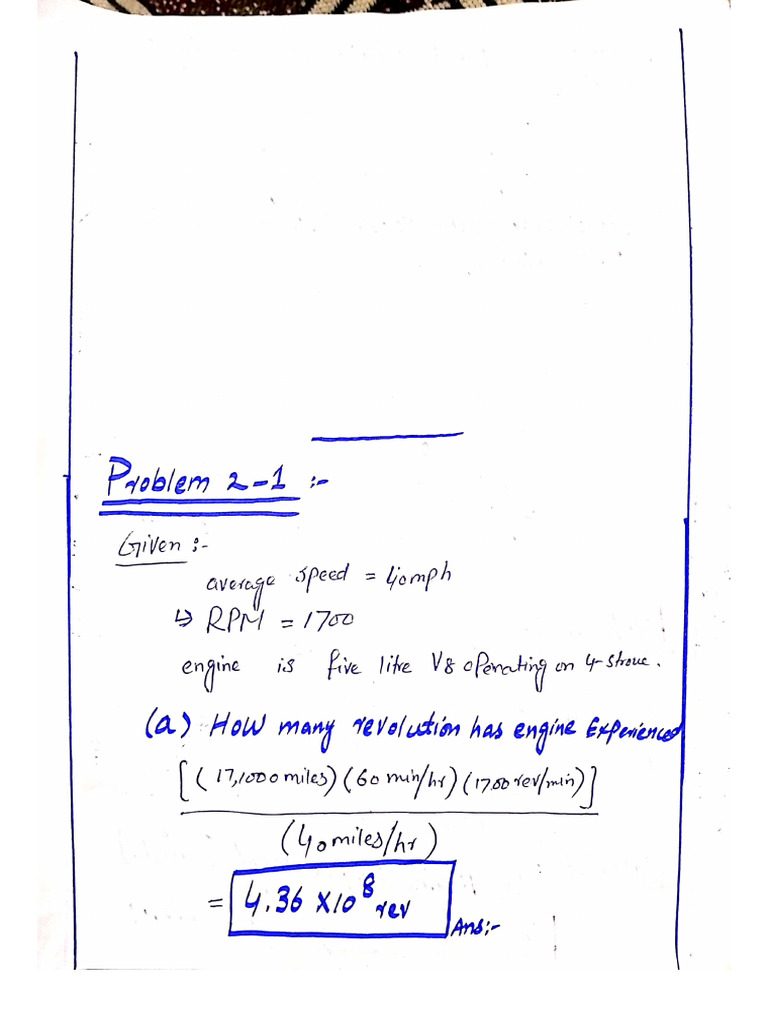 Problem 2-1 :-
Given :-
average speed = 40mph
↳ RPM = 1700
engine is five litre V8 operating on 4-stroue.
(a) How many revolution has engine Experienced
[(17,1000miles)(60 min/hr)(1700rev/min)]
(40miles/hr)
= 4.36 X10⁸ rev Ans:-